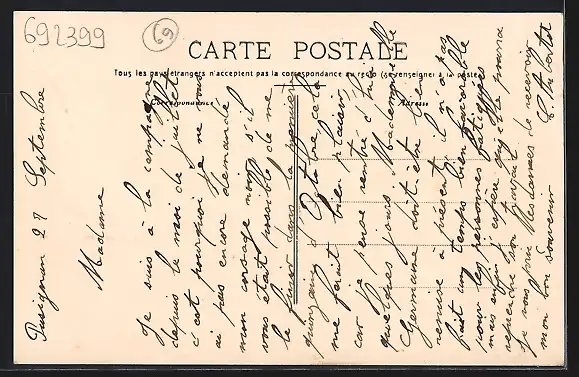 692399
69
CARTE POSTALE
Tous les pays étrangers n'acceptent pas la correspondance au recto (Se renseigner à la poste)
Correspondance
Adresse
Pusignan 27 Septembre
Madame
Je suis à la campagne
depuis le mois de juillet
c'est pourquoi je ne vous
ai pas encore demandé
mon corsage mais s'il
vous était possible de me
le finir dans la première
quinzaine d'Octobre cela
me ferait bien plaisir,
car je pense rentré d'ici
quelques jours. Mademoiselle
Germaine doit-être bien
remise à présent, il n'a pas
fait un temps bien favorable
pour les personnes fatiguées
mais enfin j'espère qu'elle pourra
reprendre son travail
Je vous prie Mesdames de recevoir
mon bon Souvenir